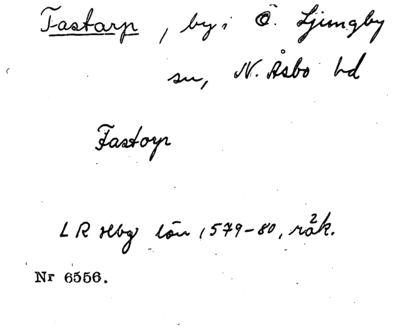 Fastarp, by i Ö. Ljungby
sn, N. Åsbo hd
Fastorp
LR Hbg län 1579-80, räk.
Nr 6556.